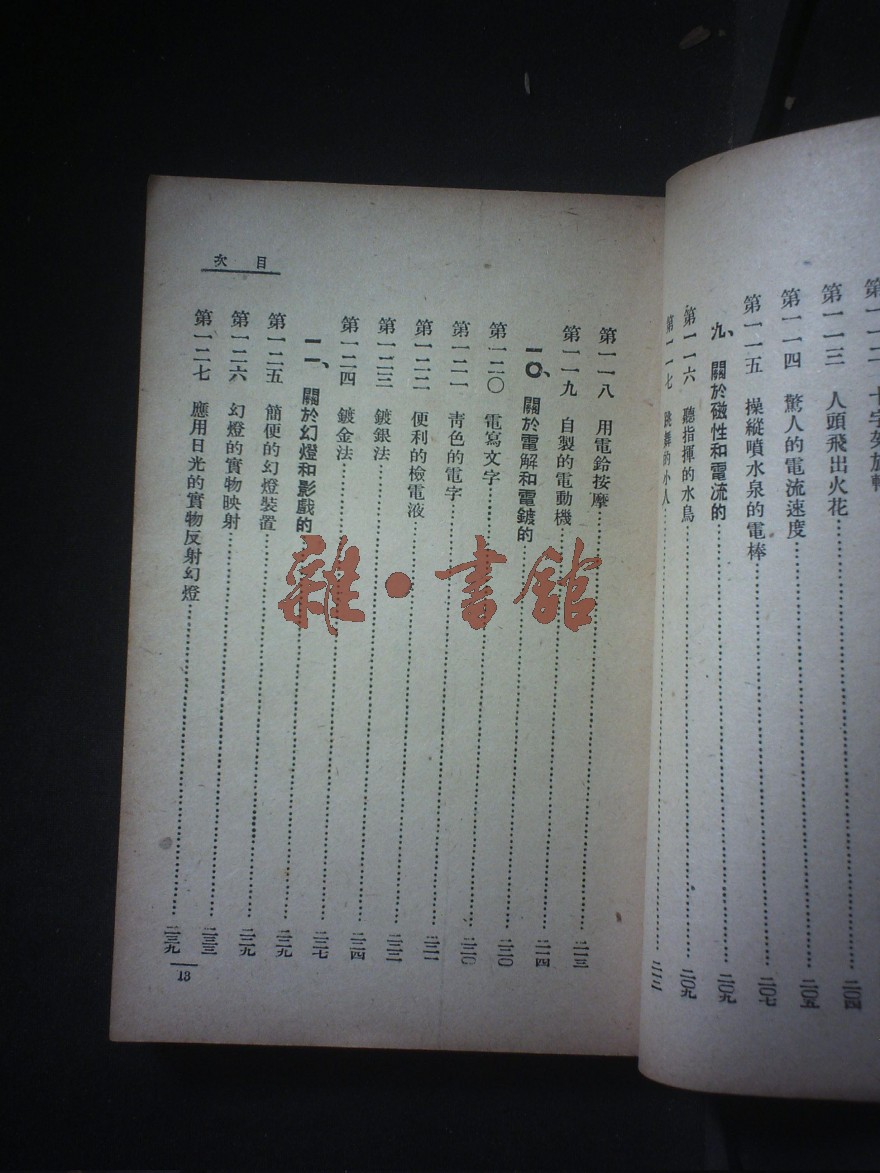 第一一三 人頭飛出火花……二〇四
第一一四 驚人的電流速度……二〇五
第一一五 操縱噴水泉的電棒……二〇七
九、關於磁性和電流的……二〇九
第一一六 聽指揮的水鳥……二〇九
第一一七 跳舞的小人……二一二
目次
第一一八 用電鈴按摩……二一三
第一一九 自製的電動機……二一四
一〇、關於電解和電鍍的……二二〇
第一二〇 電寫文字……二二〇
第一二一 靑色的電字……二二一
第一二二 便利的檢電液……二二二
第一二三 鍍銀法……二二四
第一二四 鍍金法……二二七
一一、關於幻燈和影戲的……二二九
第一二五 簡便的幻燈裝置……二二九
第一二六 幻燈的實物映射……二三三
第一二七 應用日光的實物反射幻燈……二三九
13
雜·書館